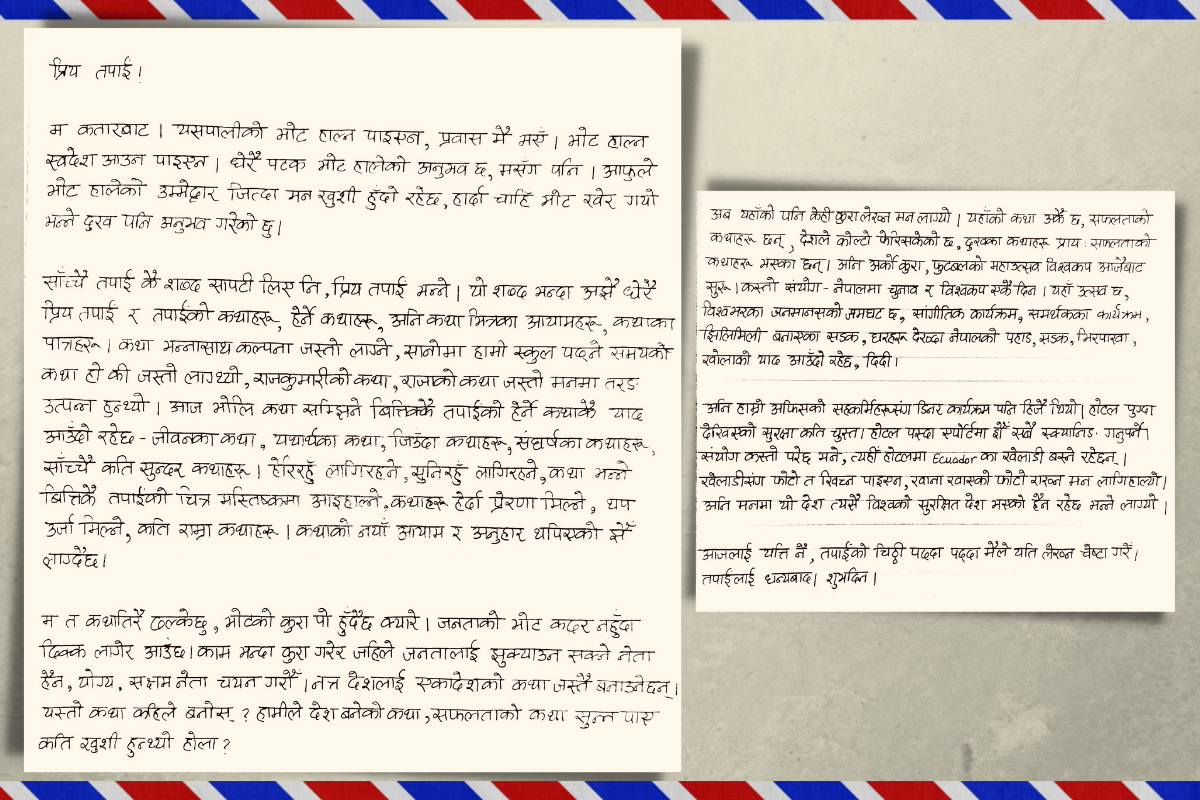 प्रिय तपाईं!
म कतारबाट । यसपालीको भोट हाल्न पाइएन, प्रवास मै भएँ । भोट हाल्न
स्वदेश आउन पाइएन । धेरै पटक भोट हालेको अनुभव छ, मसँग पनि । आफुले
भोट हालेको उम्मेद्वार जित्दा मन खुशी हुँदो रहेछ, हार्दा चाहिँ भोट खेर गयो
भन्ने दुख पनि अनुभव गरेको छु।
साँच्चै तपाईं कै शब्द सापटी लिएँ नि, प्रिय तपाईं भन्ने । यो शब्द भन्दा अझै धेरै
प्रिय तपाईं र तपाईंको कथाहरू, हेर्ने कथाहरू, अनि कथा भित्रका आयामहरू, कथाका
पात्रहरू । कथा भन्नासाथ कल्पना जस्तो लाग्ने, सानोमा हामी स्कुल पढ्ने समयको
कथा हो की जस्तो लाग्थ्यो, राजकुमारीको कथा, राजाको कथा जस्तो मनमा तरङ
उत्पन्न हुन्थ्यो । आज भोलि कथा सम्झिने बित्तिकै तपाईंको हेर्ने कथाकै याद
आउँदो रहेछ - जीवनका कथा, यथार्थका कथा, जिउँदा कथाहरू, संघर्षका कथाहरू,
साँच्चै कति सुन्दर कथाहरू । हेरिरहुँ लागिरहने, सुनिरहुँ लागिरहने, कथा भन्ने
बित्तिकै तपाईंको चित्र मस्तिष्कमा आइहाल्ने, कथाहरू हेर्दा प्रेरणा मिल्ने, थप
उर्जा मिल्ने, कति राम्रा कथाहरू । कथाको नयाँ आयाम र अनुहार थपिएको झैँ
लाग्दैछ।
म त कथातिरै ढल्केछु, भोटको कुरा पो हुँदैछ क्यारे । जनताको भोट कदर नहुँदा
दिक्क लागेर आउँछ। काम भन्दा कुरा गरेर जहिले जनतालाई झुक्याउन सक्ने नेता
हैन, योग्य, सक्षम नेता चयन गरौँ । नत्र देशलाई एकादेशको कथा जस्तै बनाउनेछन्।
यस्तो कथा कहिले बनोस् ? हामीले देश बनेको कथा, सफलताको कथा सुन्न पाए
कति खुशी हुन्थ्यो होला ?
अब यहाँको पनि केही कुरा लेख्न मन लाग्यो । यहाँको कथा अर्कै छ, सफलताको
कथाहरू छन्, देशले कोल्टो फेरिसकेको छ, दुखका कथाहरू प्राय: सफलताको
कथाहरू भएका छन्। अनि अर्को कुरा, फुटबलको महाउत्सव विश्वकप आजैबाट
सुरू । कस्तो संयोग - नेपालमा चुनाव र विश्वकप एकै दिन । यहाँ उत्सव छ,
विश्वभरका जनमानसको जमघट छ, सांगीतिक कार्यक्रम, समर्थकका कार्यक्रम,
झिलिमिली बनाएका सडक, घरहरू देख्दा नेपालको पहाड, सडक, भिरपाखा,
खोलाको याद आउँदो रहेछ, दिदी।
अनि हाम्रो अफिसको सहकर्मिहरूसंग डिनर कार्यक्रम पनि हिजै थियो। होटल पुग्दा
देखिएको सुरक्षा कति चुस्त। होटल पस्दा एर्पोटमा झैँ सबै स्क्यानिङ गर्नुपर्ने।
संयोग कस्तो परेछ भने, त्यहीँ होटलमा Ecuador का खेलाडी बस्ने रहेछन्।
खेलाडीसंग फोटो त खिच्न पाइएन, खाना खाएको फोटो राख्न मन लागिहाल्यो।
अनि मनमा यो देश त्यसै विश्वको सुरक्षित देश भएको हैन रहेछ भन्ने लाग्यो ।
आजलाई यत्ति नै, तपाईंको चिठ्ठी पढ्दा पढ्दा मैले यति लेख्न चेष्टा गरेँ।
तपाईंलाई धन्यबाद। शुभदिन।